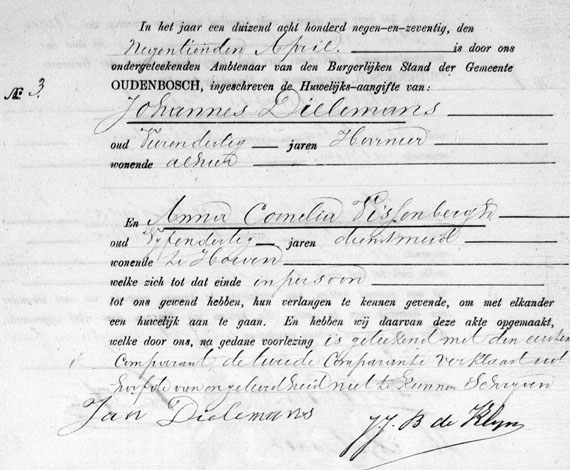 In het jaar een duizend acht honderd negen-en-zeventig, den
Negentienden April. is door ons
ondergeteekenden Ambtenaar van den Burgerlijken Stand der Gemeente
OUDENBOSCH, ingeschreven de Huwelijks-aangifte van:
№ 3.
Johannes Dielemans
oud Vierendertig jaren Hovenier
wonende alhier
En Anna Cornelia Vissenbergh
oud Vijfendertig jaren dienstmeid
wonende te Hoeven
welke zich tot dat einde in persoon
tot ons gewend hebben, hun verlangen te kennen gevende, om met elkander
een huwelijk aan te gaan. En hebben wij daarvan deze akte opgemaakt,
welke door ons, na gedane voorlezing is geteekend met den eersten
Comparant, de tweede Comparante verklaart uit
hoofde van ongeleerdheid niet te kunnen Schryven
Jan Dielemans
J.J.B de Klyn